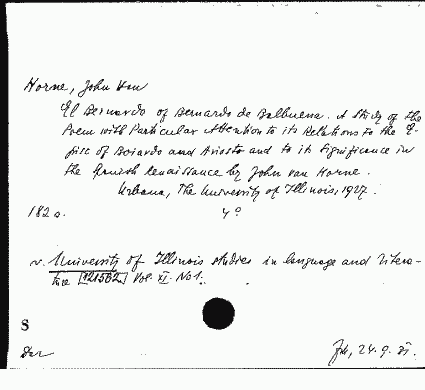 Horne, John Van
El Bernardo of Bernardo de Balbuena. A Study of the
Poem with Particular Attention to its Relations to the E-
pics of Boiardo and Ariosto and to its Significance in
the Spanish Renaissance by John van Horne.
Urbana, The University of Illinois, 1927.
182 a. 4°
v. University of Illinois studies in language and litera-
ture [121562] Vol. XI. No 1.
S
24.9.31.